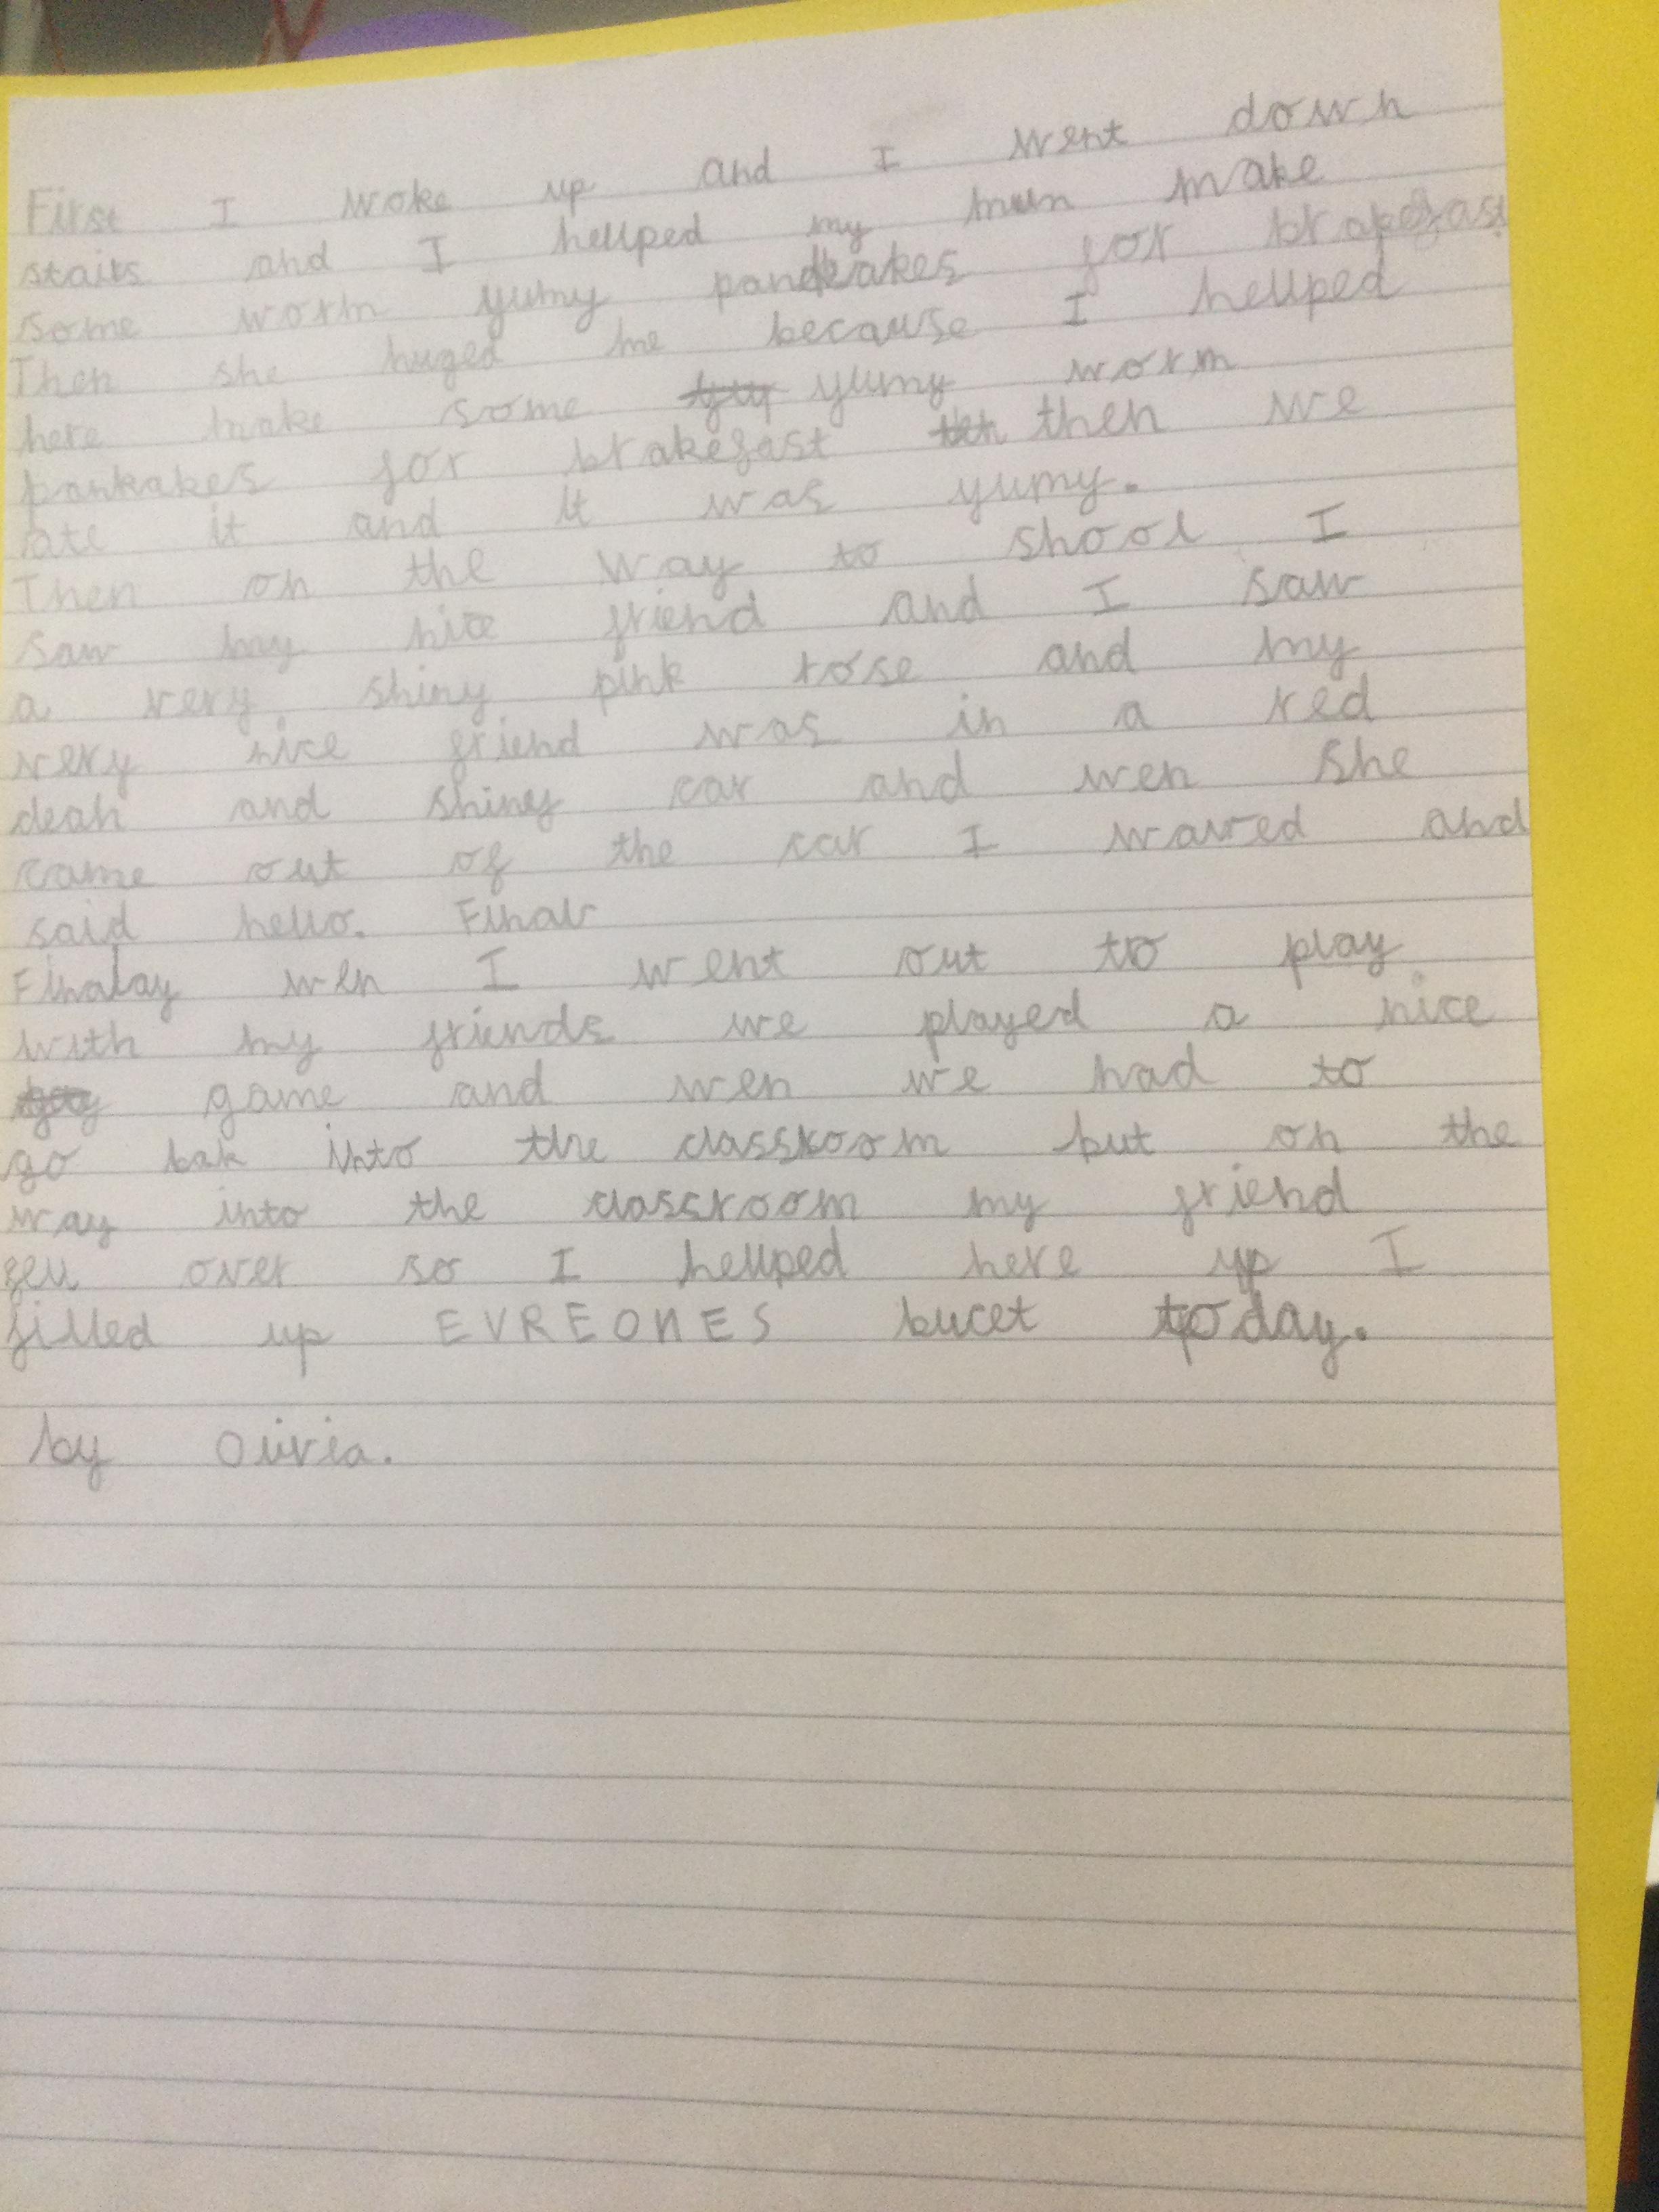 First I woke up and I went down
stairs and I hellped my mum make
some worm yumy pankakes for brakefast
Then she huged me because I hellped
here make some yumy worm
pankakes for brakefast then we
ate it and it was yumy.
Then on the way to shool I
saw my nice friend and I saw
a very shiny pink rose and my
very nice friend was in a red
clean and shiny car and wen she
came out of the car I waved and
said hello. Final
Finalay wen I went out to play
with my friends we played a nice
game and wen we had to
go bak into the classroom but on the
way into the classroom my friend
fell over so I hellped here up I
filled up EVREONES bucet today.
by Olivia.